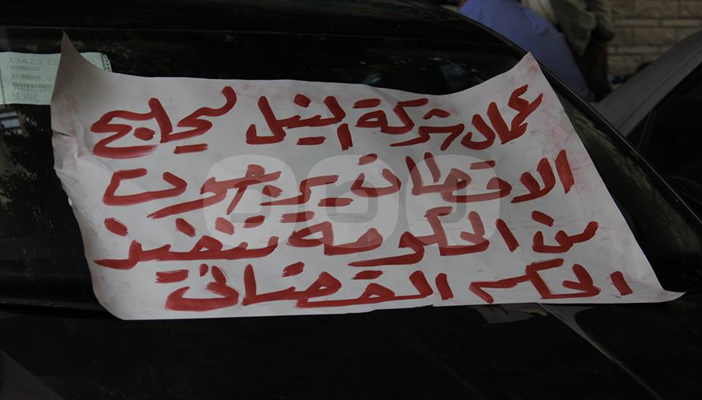 عمال شركة النيل لحليج
الاقطان يرجون
من الحكومة تنفيذ
الحكم القضائى